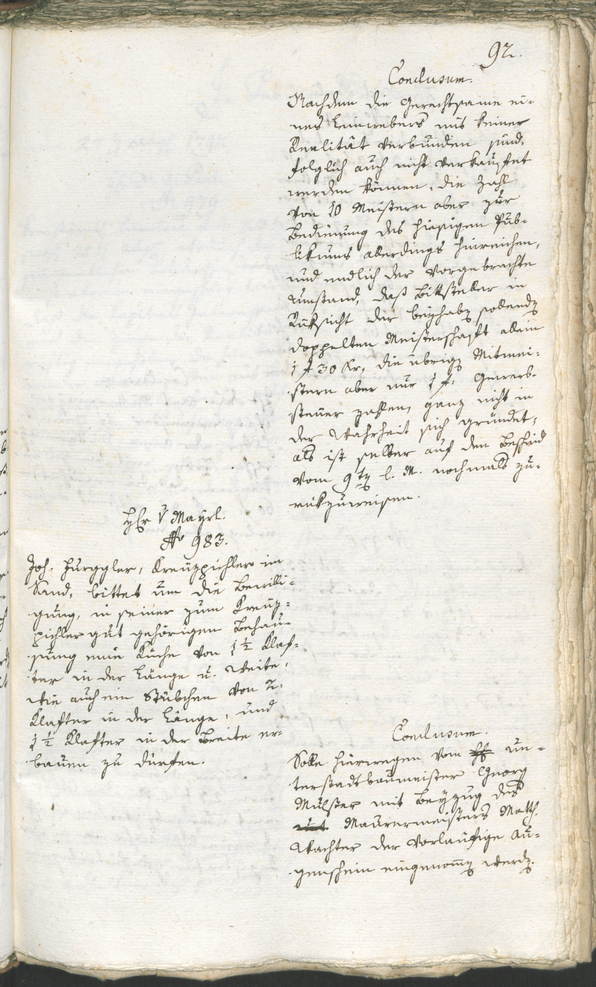 92.
Conclusum.
Nachdem die Gerechtsame ei-
nes Leinwebers mit keiner
Realität verbunden sind,
folglich auch nicht verkaufet
werden können, die Zahl
von 10 Meistern aber zur
Bedienung des hiesigen Pub-
likums allerdings hinreichen,
und endlich der vorgebrachte
Umstand, daß Bittsteller in
Rüksicht der beyhabend sollenden
doppelten Meisterschaft allein
1 f 30 kr, die übrigen Mitmei-
stern aber nur 1 f: Gewerb-
steuer zahlen, ganz nicht in
der Wahrheit sich gründet;
als ist selber auf den Bescheid
vom 9ten l. M. nochmals zu-
rükzuweisen.
H. v Mayrl.
No 983.
Joh. Hurggler, Kreuzpichler im
Sand, bittet um die Bewilli-
gung, in seiner zum Kreuz-
pichlergut gehörigen Behau-
sung eine Küche von 1 1/2 Klaf-
ter in der Länge u. Weite,
wie auch ein Stübchen von 2
Klafter in der Länge, und
1 1/2 Klafter in der Breite er-
bauen zu dürfen.
Conclusum.
Solle hierwegen vom un-
terstadtbaumeister Georg
Mülster mit Beyzug des
Maurermeisters Math.
Wachter der vorläufige Au-
genschein eingenommen werden.